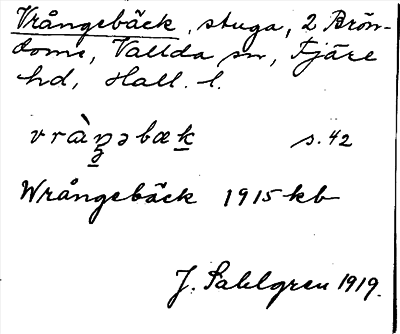 Vrångebäck, stuga, 2 Brön-
doms, Vallda sn, Fjäre
hd, Hall. l.
vràŋ̠əbæk̠ s. 42
Wrångebäck 1915 kb
J. Sahlgren 1919.